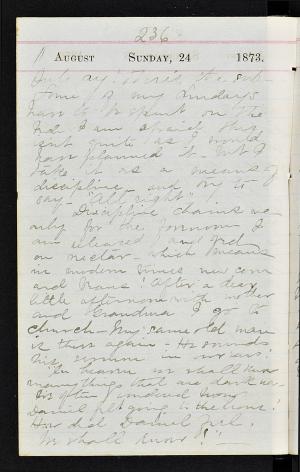 236
AUGUST SUNDAY, 24 1873.
my Sundays
have to be spent on the
bed. I am afraid they
isn't quite as would
have planned it. But I
take it as a means of
discipline and try to
say "All right"!
Discipline chains me
only for the forenoon I
am released and fed
on nectar – which means
in modern times new corn
and beans! After a dear
little afternoon with mother
and Grandma I go to
church – My same old man
is there again – He sounds
his sermon in our ears!
"In heaven we shall know
many things that are dark" as
wondered how
Daniel felt going to the lions!
How did Daniel feel.
We shall know!" –